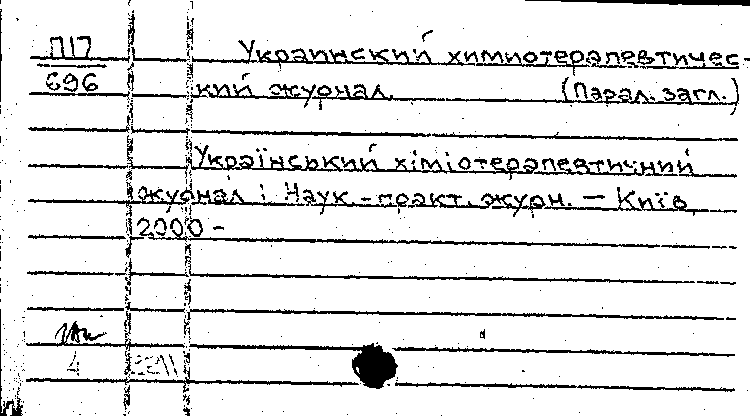 П17
696
Украинский химиотерапевтичес-
кий журнал. (Парал. загл.)
Український хіміотерапевтичний
журнал : Наук.-практ. журн. — Київ,
2000 -
4